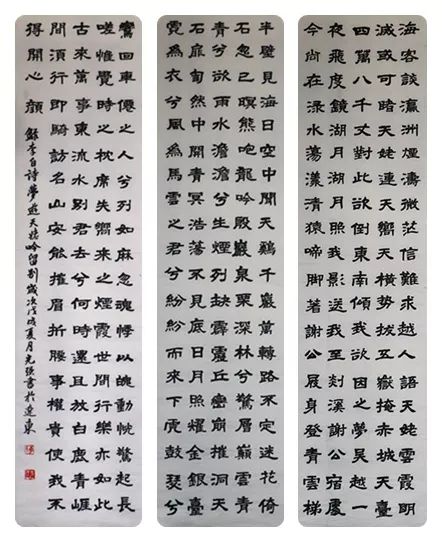 海客談瀛洲煙濤微茫信難求越人語天姥雲霞明
滅或可睹天姥連天嚮天橫勢拔五嶽掩赤城天臺
四萬八千丈對此欲倒東南傾我欲因之夢吳越一
夜飛度鏡湖月湖月照我影送我至剡溪謝公宿處
今尚在渌水蕩漾清猿啼腳著謝公屐身登青雲梯
半壁見海日空中聞天鷄千巖萬轉路不定迷花倚
石忽已暝熊咆龍吟殷巖泉栗深林兮驚層巔雲青
青兮欲雨水澹澹兮生煙列缺霹靂丘巒崩摧洞天
石扉訇然中開青冥浩蕩不見底日月照耀金銀臺
霓為衣兮風為馬雲之君兮紛紛而來下虎鼓瑟兮
鸞回車僊之人兮列如麻忽魂悸以魄動怳驚起長
嗟惟覺時之枕席失嚮來之煙霞世間行樂亦如此
古來萬事東流水別君去兮何時還且放白鹿青崖
間須行即騎訪名山安能摧眉折腰事權貴使我不
得開心顏 錄李白詩夢遊天姥吟留別歲次戊戌夏月光強書於遼東